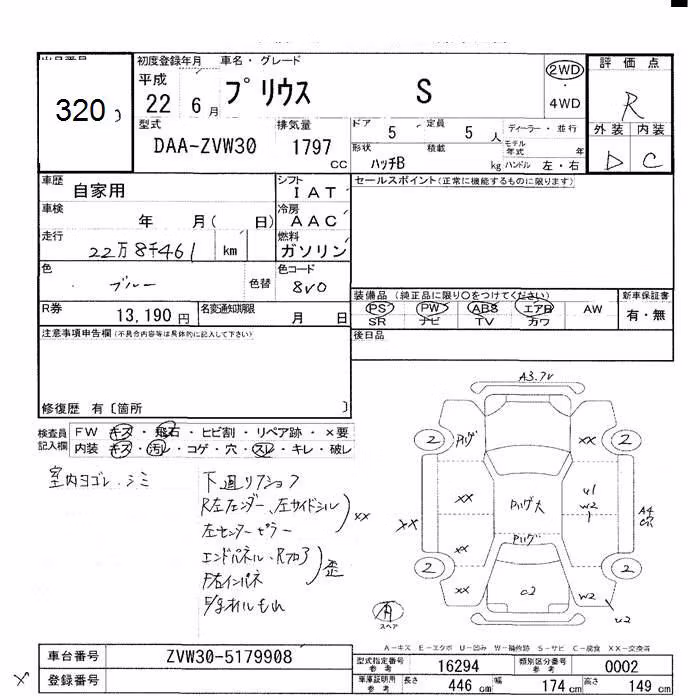 出品番号
320
初度登録年月
平成
22 6 月
車名・グレード
プリウス S
2WD
・
4WD
評価点
R
外装 内装
D C
型式
DAA-ZVW30
排気量
1797
CC
ドア 5
定員 5 人
ディーラー・並行
形状 ハッチB
積載 kg
モデル年式 年
ハンドル 左・右
車歴
自家用
シフト
IAT
セールスポイント(正常に機能するものに限ります)
車検
年 月( 日)
冷房
AAC
走行
22万8千461 km
燃料
ガソリン
色
ブルー
色替
色コード
8V0
装備品 (純正品に限り〇をつけてください)
新車保証書
PS PW ABS エアB AW
有・無
SR ナビ TV カワ
R券
13,190 円
名変通知期限
月 日
後日品
注意事項申告欄(不具合内容等は具体的に記入して下さい)
修復歴 有〔箇所 〕
検査員
記入欄
FW キズ・飛石・ヒビ割・リペア跡・×要
内装 キズ・汚レ・コゲ・穴・スレ・キレ・破レ
室内ヨゴレ.シミ
下廻りサフョフ
R左フェンダー、左サイドシル
左センターピラー
XX
エンドパネル、Rフロア
F右インパネ
歪
A3.7V
2 2
XX
XX
XX
XX
XX
XX
U1
W2
A4
2 2
W2
U2
スペア
A-キズ E-エクボ U-凹み W-補修跡 S-サビ C-腐食 XX-交換済
車台番号
ZVW30-5179908
登録番号
型式指定番号
参考
16294
類別区分番号
参考
0002
車庫証明用
参考
長さ 446 cm
幅 174 cm
高さ 149 cm